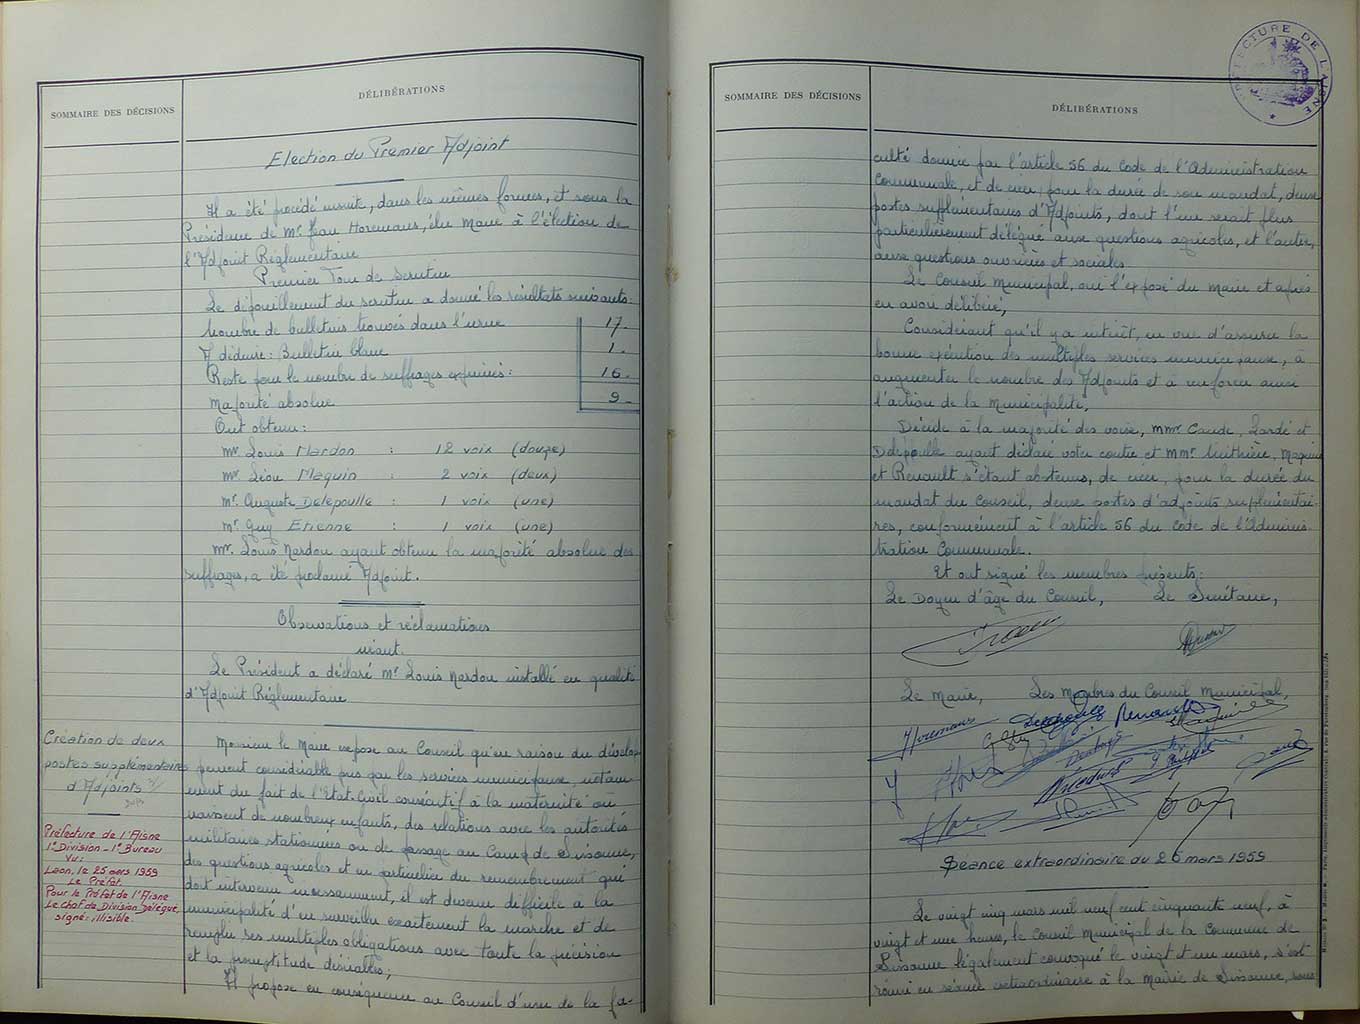 SOMMAIRE DES DÉCISIONS
DÉLIBÉRATIONS
Election du Premier Adjoint
Il a été procédé ensuite, dans les mêmes formes, et sous la
Présidence de Mr. Jean Horemans, élu Maire à l'élection de
l'Adjoint Réglementaire
Premier Tour de Scrutin
Le dépouillement du scrutin a donné les résultats suivants:
Nombre de bulletins trouvés dans l'urne 17.
A déduire: Bulletin blanc 1.
Reste pour le nombre de suffrages exprimés: 16.
Majorité absolue 9.
Ont obtenu:
Mr. Louis Nardon : 12 voix (douze)
Mr. Léon Maquin : 2 voix (deux)
Mr. Auguste Delépoulle : 1 voix (une)
Mr. Guy Etienne : 1 voix (une)
Mr. Louis Nardon ayant obtenu la majorité absolue des
suffrages, a été proclamé Adjoint.
Observations et réclamations
néant.
Le Président a déclaré Mr Louis Nardon installé en qualité
d'Adjoint Réglementaire
Création de deux
postes supplémentaires
d'Adjoints
Préfecture de l'Aisne
1e Division - 1e Bureau
Vu:
Laon, le 25 mars 1959
Le Préfet.
Pour le Préfet de l'Aisne
Le Chef de Division Délégué,
signé: illisible.
Monsieur le Maire expose au Conseil qu'en raison du dévelop-
pement considérable pris par les services municipaux, notam-
ment du fait de l'Etat-Civil consécutif à la maternité où
naissent de nombreux enfants, des relations avec les autorités
militaires stationnées ou de passage au Camp de Sissonne,
des questions agricoles et en particulier du remembrement qui
doit intervenir incessamment, il est devenu difficile à la
municipalité d'en surveiller exactement la marche et de
remplir ses multiples obligations avec toute la précision
et la promptitude désirables;
Il propose en conséquence au Conseil d'user de la fa-
PRÉFECTURE DE L'AISNE
SOMMAIRE DES DÉCISIONS
DÉLIBÉRATIONS
culté donnée par l'article 56 du Code de l'Administration
Communale, et de créer, pour la durée de son mandat, deux
postes supplémentaires d'Adjoints, dont l'un serait plus
particulièrement délégué aux questions agricoles, et l'autre,
aux questions ouvrières et sociales.
Le Conseil Municipal, ouï l'exposé du Maire et après
en avoir délibéré,
Considérant qu'il y a intérêt, en vue d'assurer la
bonne exécution des multiples services municipaux, à
augmenter le nombre des Adjoints et à renforcer ainsi
l'action de la Municipalité,
Décide à la majorité des voix, MMr Caude, Lardé et
Delépoulle ayant déclaré voter contre et MMr. Maquin
et Renault s'étant abstenus, de créer, pour la durée du
mandat du Conseil, deux postes d'adjoints supplémentai-
res, conformément à l'article 56 du Code de l'Adminis-
tration Communale.
Et ont signé les membres présents:
Le Doyen d'âge du Conseil, Le Secrétaire,
Le Maire, Les Membres du Conseil Municipal,
Horemans Renault
Séance extraordinaire du 26 mars 1959
Le vingt cinq mars mil neuf cent cinquante neuf, à
vingt et une heures, le Conseil Municipal de la Commune de
Sissonne légalement convoqué le vingt et un mars, s'est
réuni en séance extraordinaire à la Mairie de Sissonne, sous